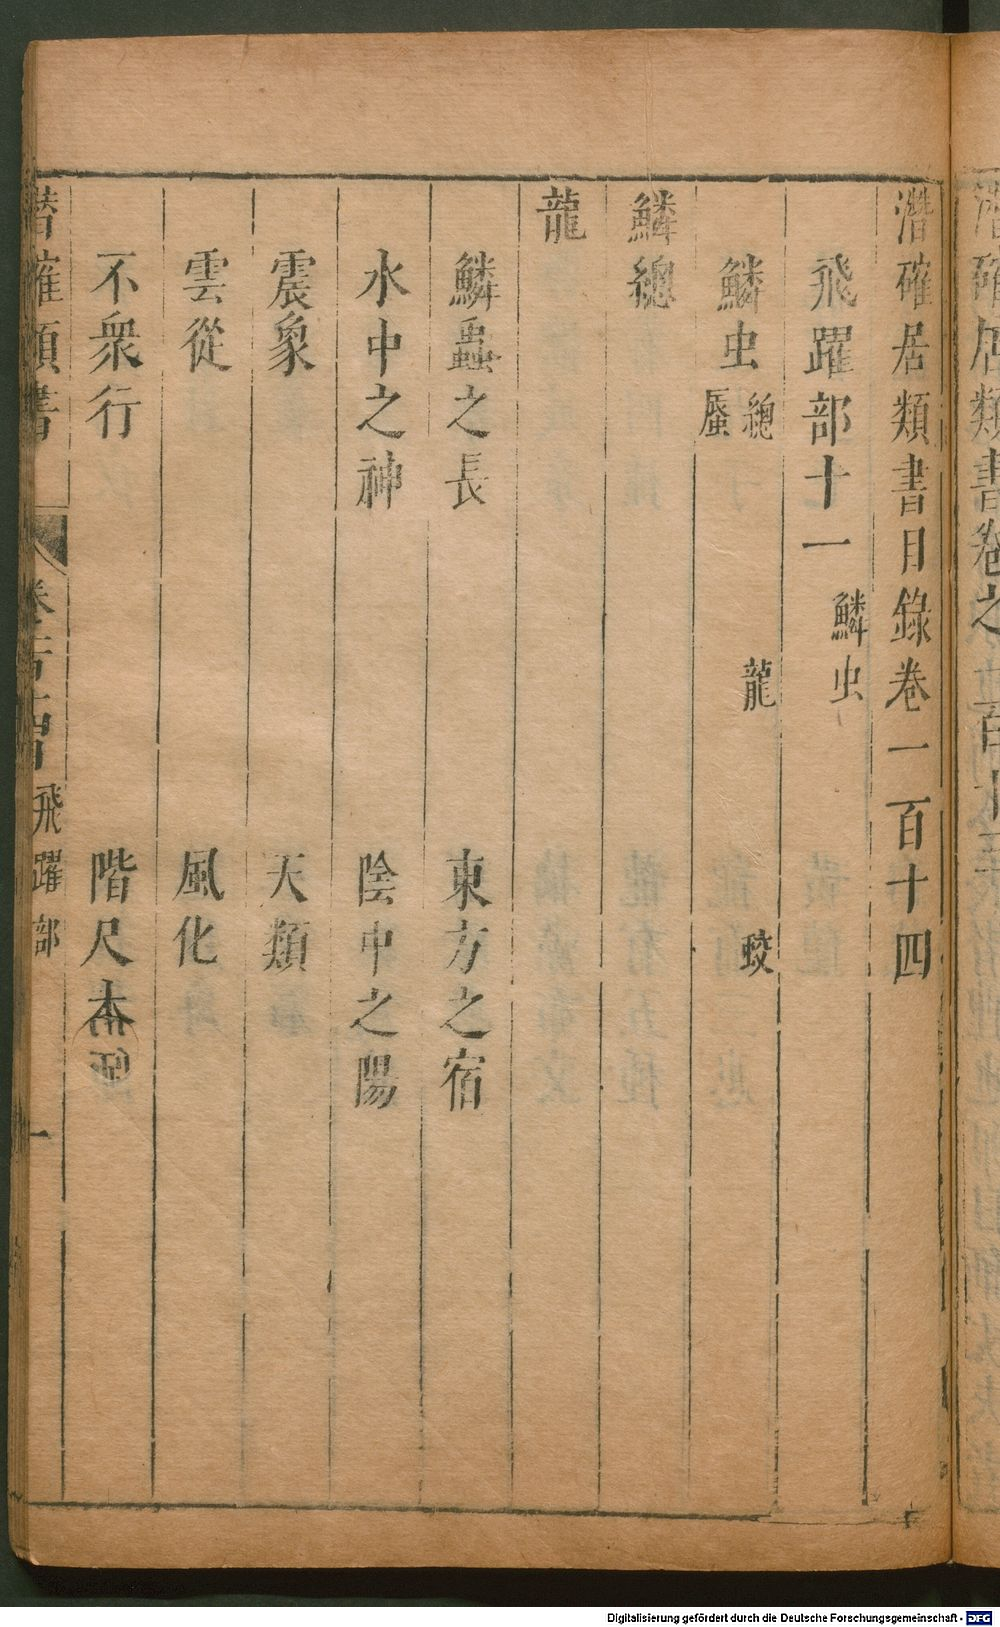 潛確居類書目錄卷一百十四
飛躍部十一 鱗虫
鱗虫 總 龍 蛟 蜃
鱗總
龍
鱗蟲之長 東方之宿
水中之神 陰中之陽
震象 天類
雲從 風化
不衆行 階尺木
潛確類書 飛躍部 一
Digitalisierung gefördert durch die Deutsche Forschungsgemeinschaft - DFG